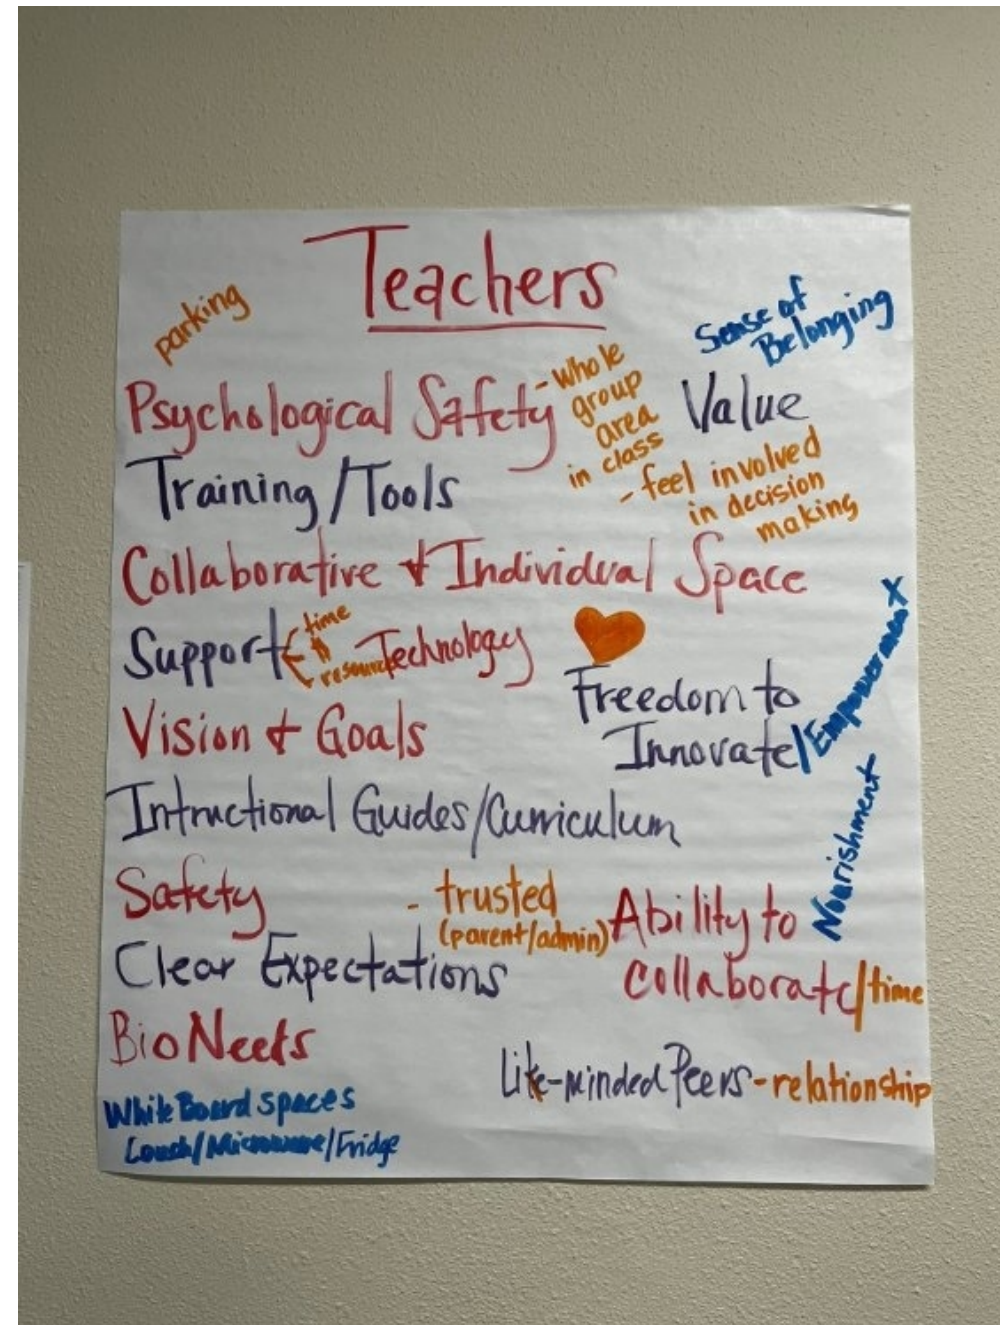 Teachers
parking
Sense of
Belonging
Psychological Safety
- whole
group
area
in class
Value
- feel involved
in decision
making
Training/Tools
Collaborative & Individual Space
Support
time
$
resources
Technology
Freedom to
Innovate/Empowerment
Vision & Goals
Intructional Guides/Curriculum
Nourishment
Safety
- trusted
(parent/admin)
Ability to
collaborate/time
Clear Expectations
Bio Needs
Like-minded Peers - relationship
White Board spaces
Couch/Microwave/Fridge